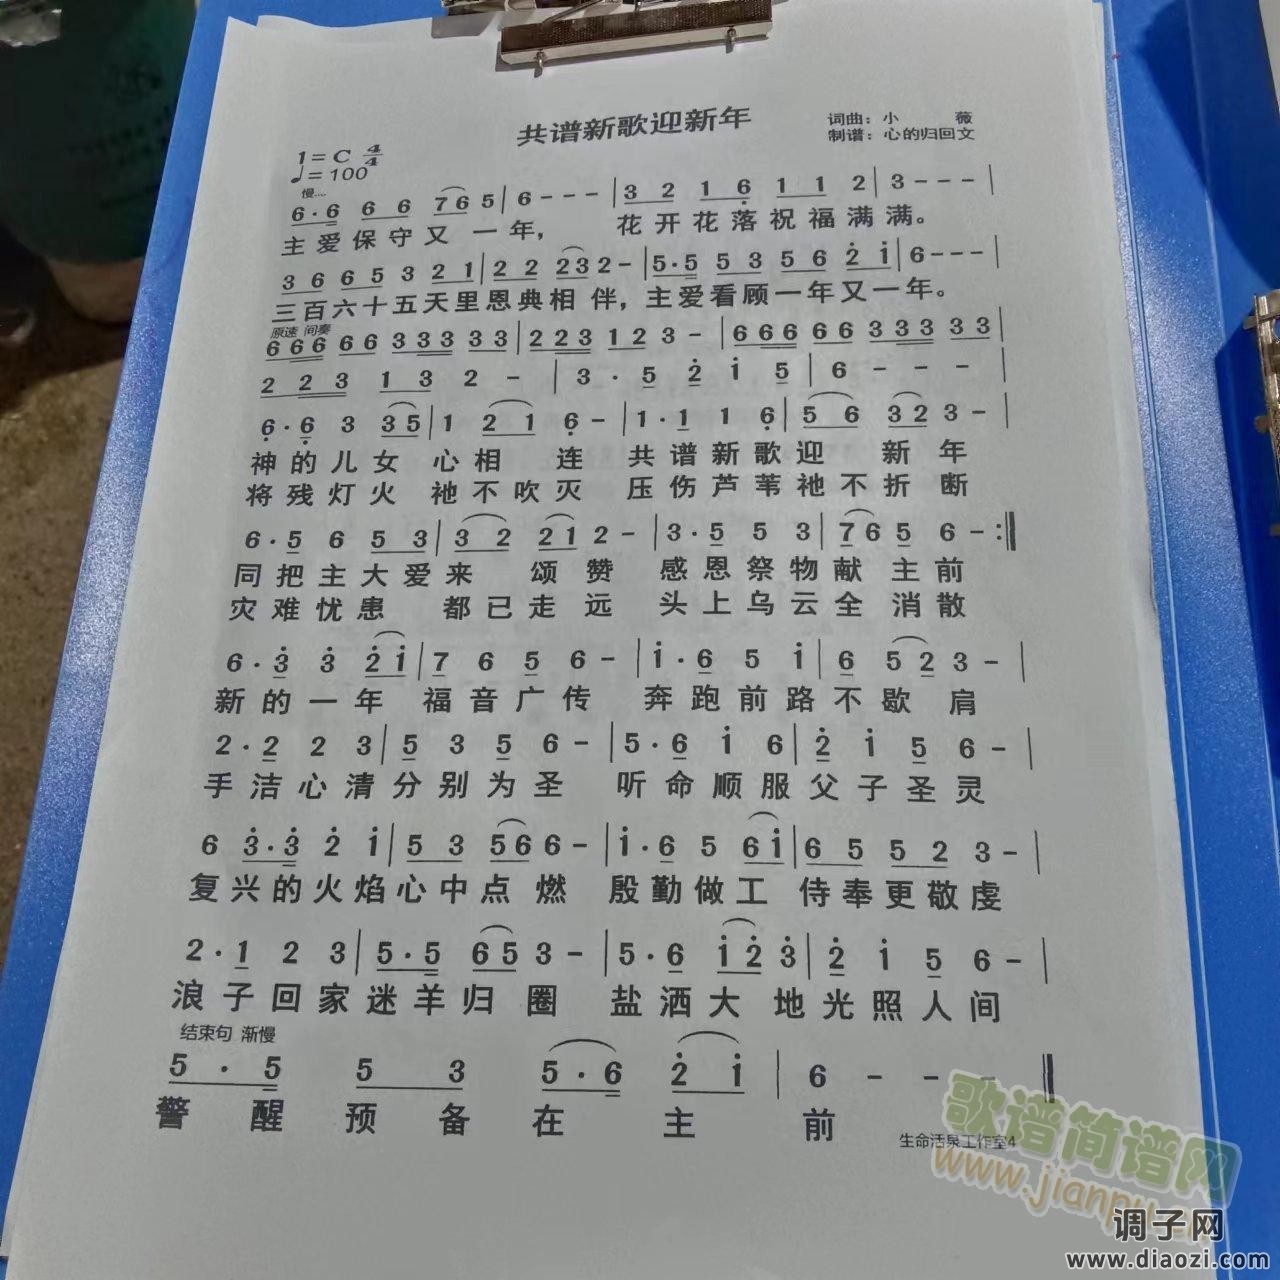 共谱新歌迎新年
词曲：小 薇
制谱：心的归回文
1=C 4/4
♩=100
慢....
6·6 6 6 76 5|6 - - -|3 2 1 6 1 1 2|3 - - -|
主爱保守又一年， 花开花落祝福满满。
3 6 6 5 3 2 1|2 2 23 2 -|5·5 5 3 5 6 2 1|6 - - -|
三百六十五天里恩典相伴，主爱看顾一年又一年。
原速 间奏
666 66 333 33|223 12 3 -|666 66 333 33|
2 2 3 1 3 2 -|3 · 5 2 1 5|6 - - -|
6·6 3 35|1 21 6 -|1·1 1 6|5 6 32 3 -|
神的儿女 心相 连 共谱新歌迎 新 年
将残灯火 祂不吹灭 压伤芦苇祂不折 断
6·5 6 5 3|3 2 21 2 -|3·5 5 3|76 5 6 -:‖
同把主大爱来 颂 赞 感恩祭物献 主前
灾难忧患 都已走远 头上乌云全 消散
6·3 3 21|7 6 5 6 -|1·6 5 1|6 52 3 -|
新的一年 福音广传 奔跑前路不歇 肩
2·2 2 3|5 3 5 6 -|5·6 1 6|2 1 5 6 -|
手洁心清分别为圣 听命顺服父子圣灵
6 3·3 2 1|5 3 56 6 -|1·6 5 61|6 5 5 2 3 -|
复兴的火焰心中点 燃 殷勤做工 侍奉更敬虔
2·1 2 3|5·5 65 3 -|5·6 12 3|2 1 5 6 -|
浪子回家迷羊归 圈 盐洒大 地光照人间
结束句 渐慢
5 · 5 5 3 5·6 2 1|6 - - -‖
警醒预备在主前
生命活泉工作室4
歌谱简谱网
www.jianpu.cn
调子网
www.diaozi.com